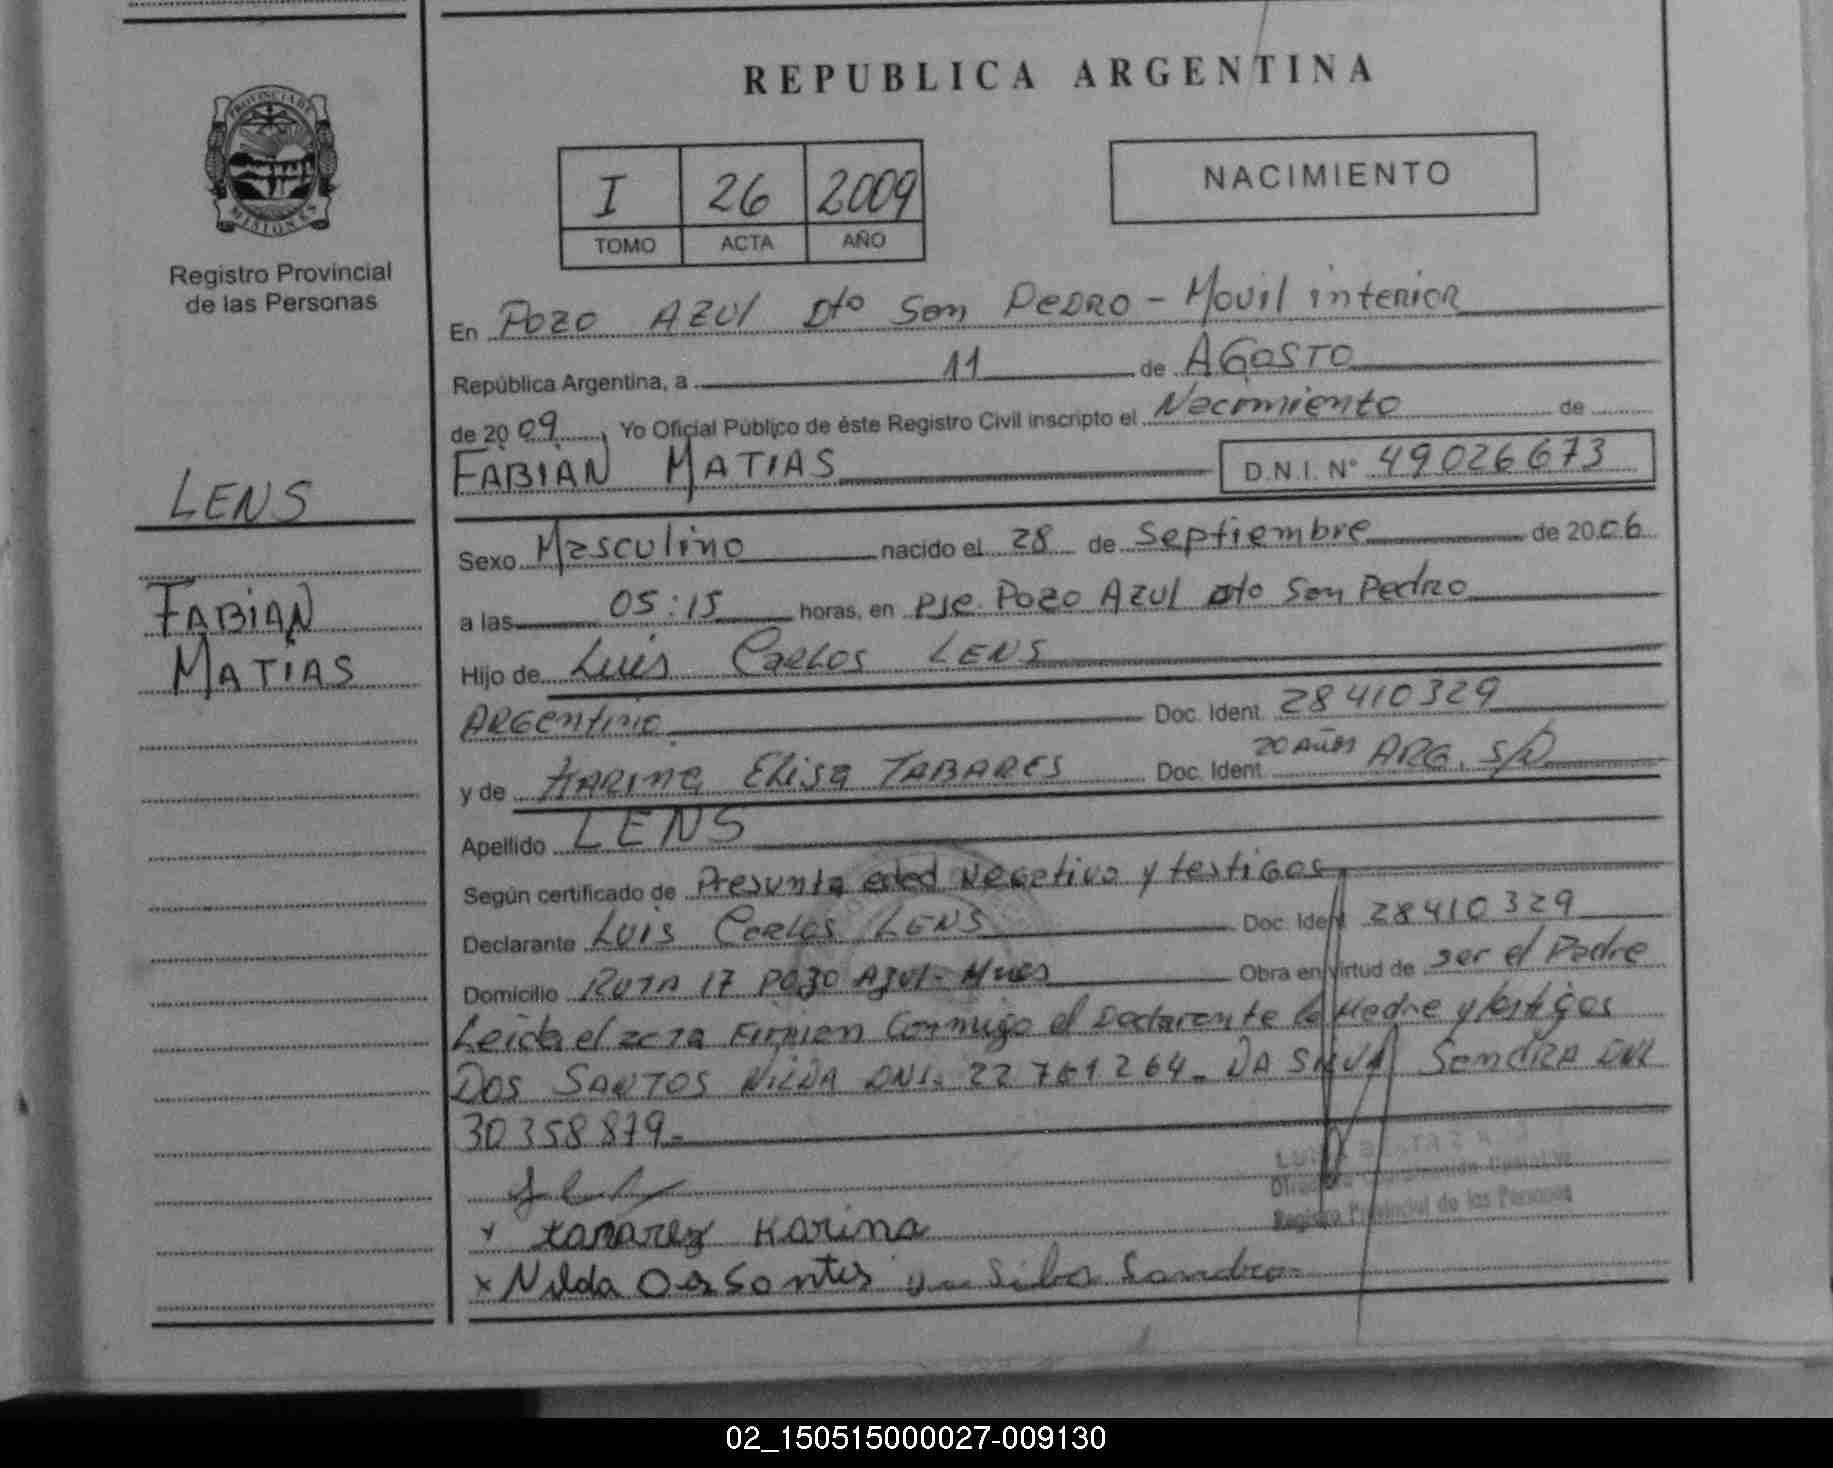 REPUBLICA ARGENTINA
PROVINCIA DE
MISIONES
Registro Provincial
de las Personas
I 26 2009
TOMO ACTA AÑO
NACIMIENTO
En Pozo AZUl Dto San PEDRO - Movil interior
República Argentina, a 11 de AGOSTO
de 2009, Yo Oficial Público de éste Registro Civil inscripto el Nacimiento de
FABIAN MATIAS D.N.I. N° 49026673
LENS
FABIAN
MATIAS
Sexo Masculino nacido el 28 de Septiembre de 2006
a las 05:15 horas, en Pje. Pozo AZUl Dto San Pedro
Hijo de Luis Carlos LENS
ARGentino Doc. Ident. 28410329
y de KARINA Elisa TABARES Doc. Ident. 20 Años ARG. S/D
Apellido LENS
Según certificado de Presunta edad Negativo y testigos
Declarante Luis Carlos LENS Doc. Ident 28410329
Domicilio RUTA 17 Pozo Azul - Mnes Obra en virtud de ser el Padre
Leida el acta Firman Conmigo el Declarante la Madre y testigos
DOS SANTOS NILDA DNI. 22 761 264 - DA SILVA Sandra DNI
30358879 -
Registro Provincial de las Personas
x tabarez Karina
x Nilda Dos Santos Da Silva Sandra
02_150515000027-009130